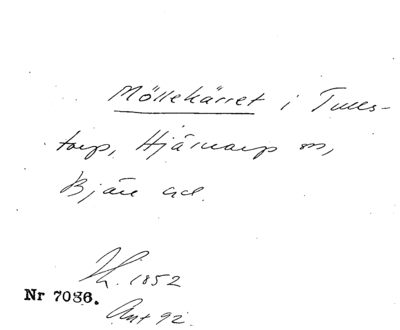 Möllekärret i Tules-
torp, Hjärnarp sn,
Bjäre hd.
1852
Nr 7086.
Ant 92.